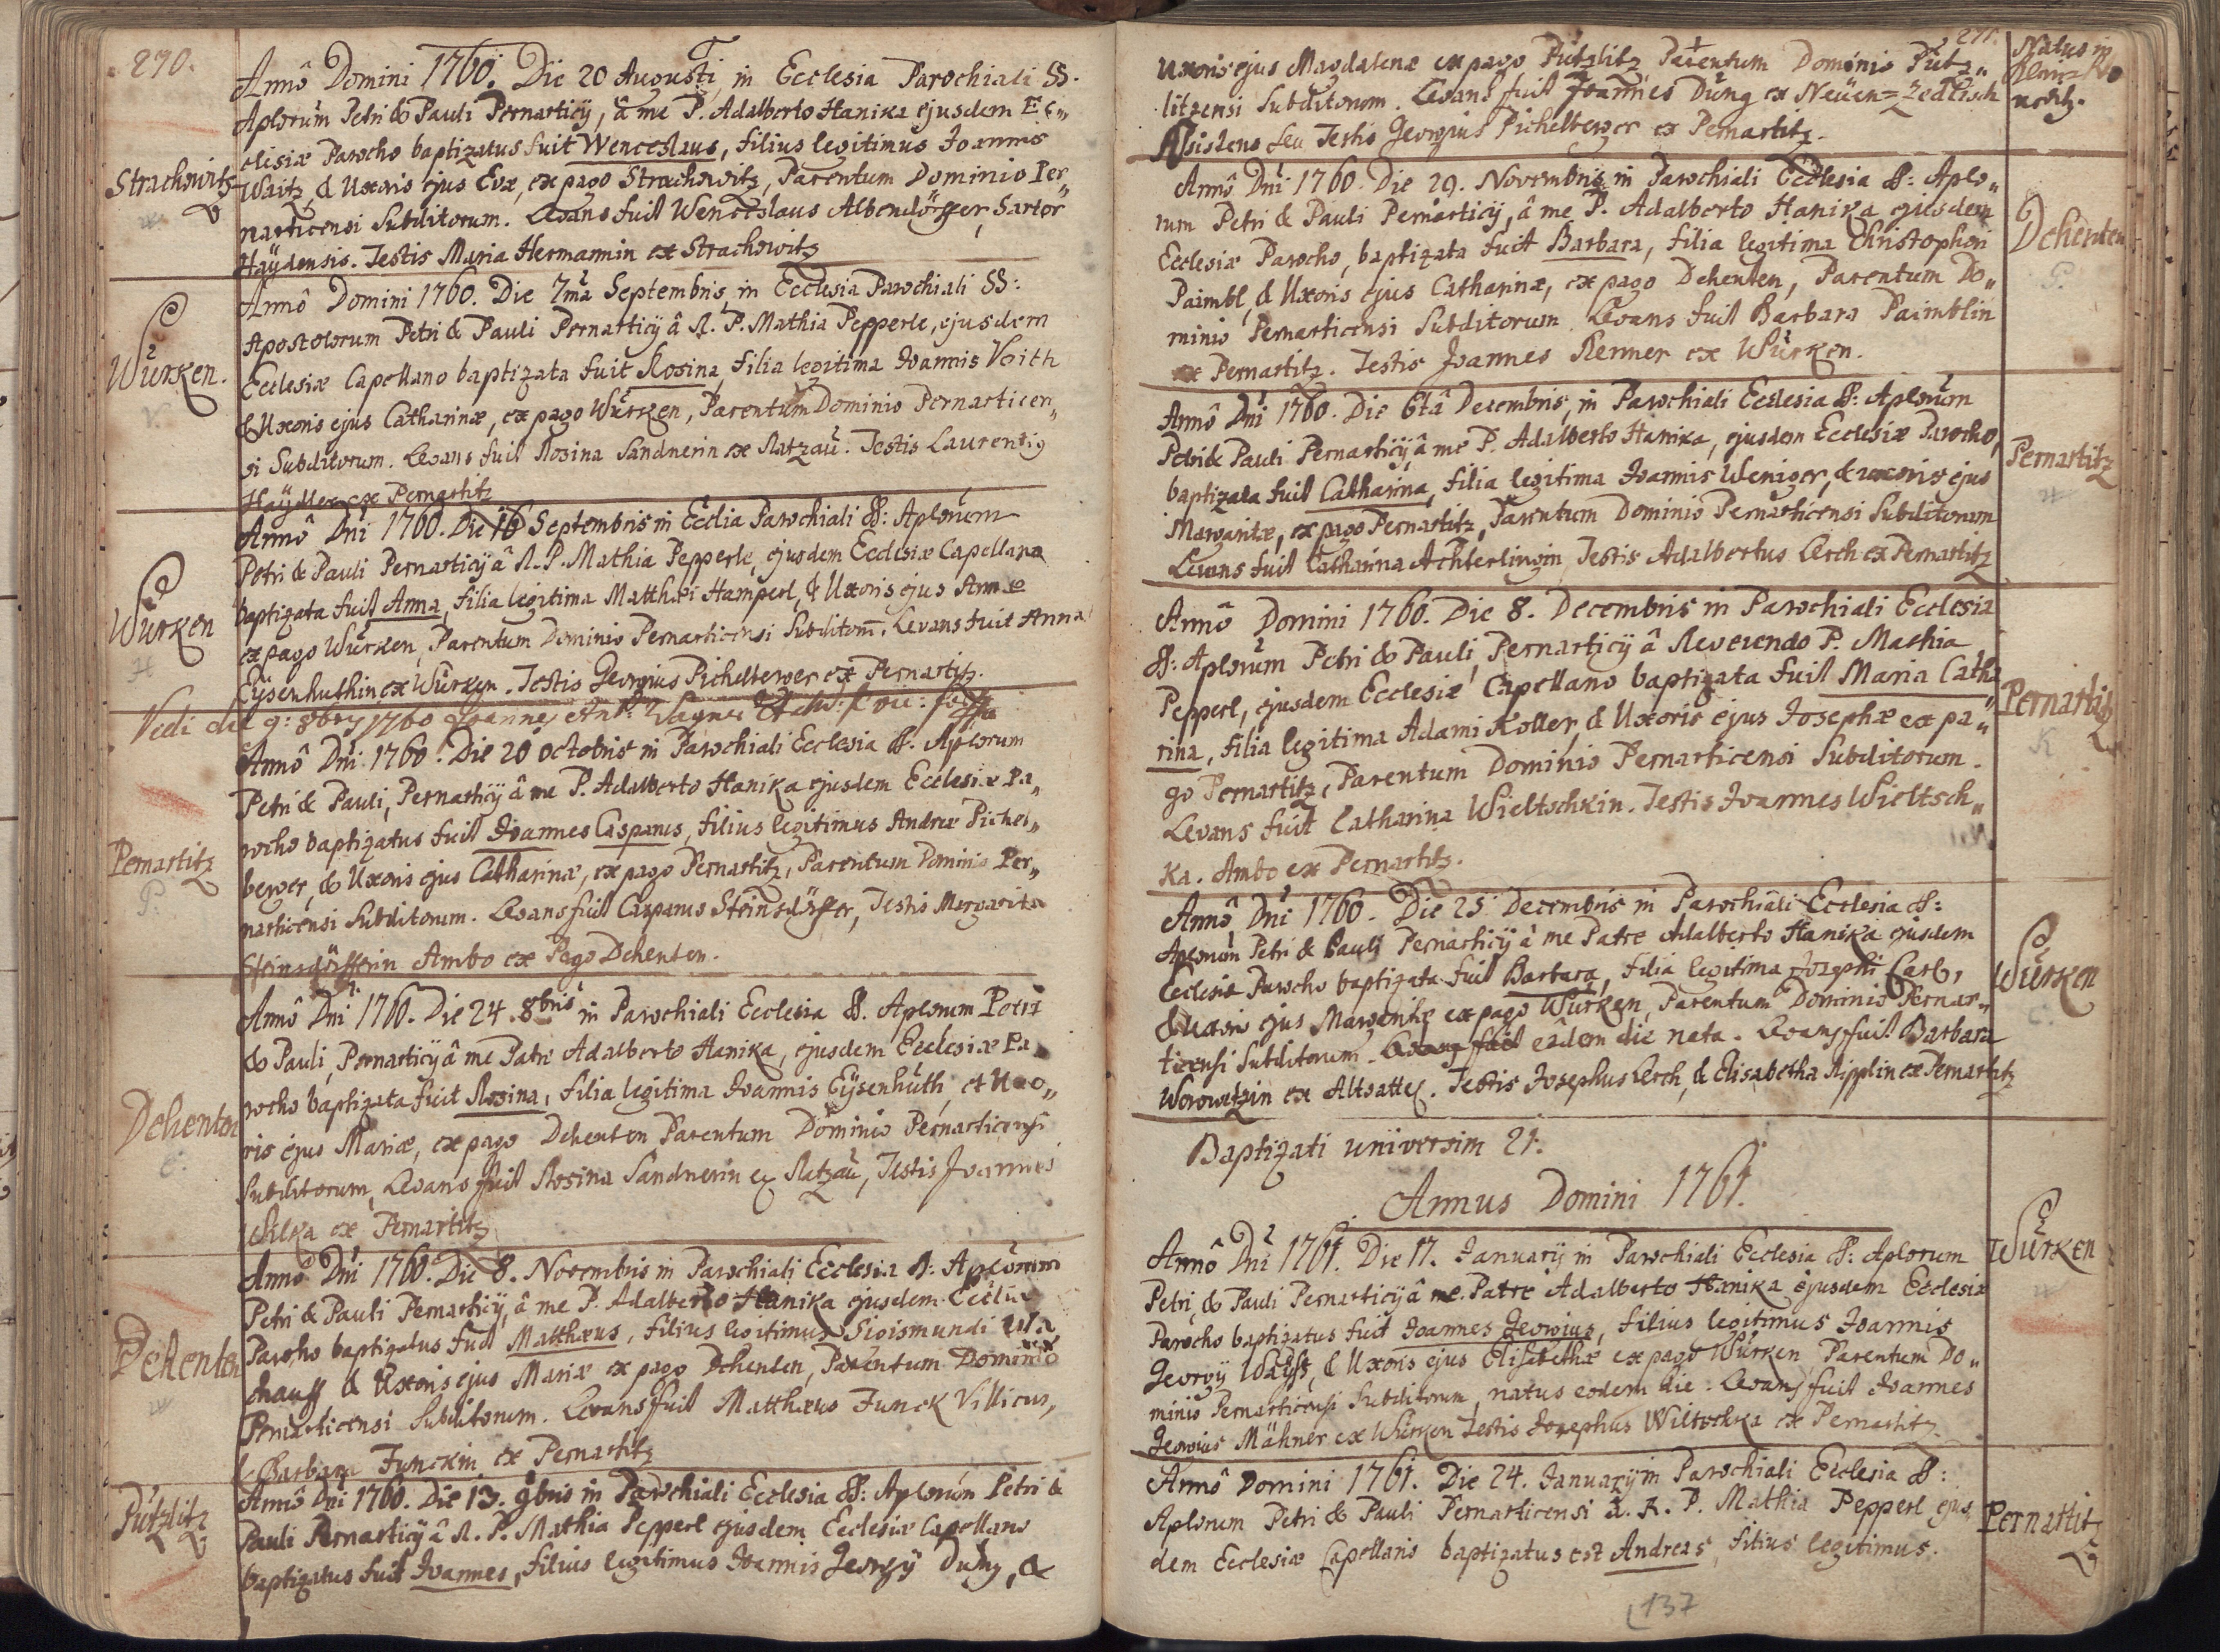 290.
Annô Domini 1760. Die 20 Augusti, in Ecclesia Parochiali SS.
Aplorum Petri & Pauli Pernarticÿ, â me P. Adalberto Hanika ejusdem Ec„
clisiæ Parocho baptizatus fuit Wenceslaus, filius legitimus Joannis
Strachowitz
Waitz, & Uxoris ejus Evæ, ex pago Strachowitz, Parentum Dominio Per„
narticensi Subditorum. Levans fuit Wenceslaus Albendörffer, Sartor
Haÿdensis. Testis Maria Hermannin ex Strachowitz
Annô Domini 1760. Die 7mâ Septembris, in Ecclesia Parochiali SS:
Apostolorum Petri & Pauli Pernarticÿ â R. P. Mathia Pepperle, ejusdem
Würken.
V.
Ecclesiæ Capellano baptizata fuit Rosina, filia legitima Joannis Voith
& Uxoris ejus Catharinæ, ex pago Würken, Parentum Dominio Pernarticen„
si Subditorum. Levans fuit Rosina Sandnerin ex Ratzau. Testis Laurentig
Haÿdler ex Pernartitz
Annô Dni 1760. Die 16 Septembris in Ecclia Parochiali SS: Aplorum
Petri & Pauli Pernarticÿ â R. P. Mathia Pepperle, ejusdem Ecclesiæ Capellano
Würken
H
baptizata fuit Anna, filia legitima Matthæi Hamperl, & Uxoris ejus Annæ
ex pago Würken, Parentum Dominio Pernarticensi Subditorm. Levans fuit Anna
Eÿsenhuthin ex Würken. Testis Georgius Pichelberger ex Pernartitz.
Vedi die 9: 8bry 1760 Joannes Ant: Wagner
Annô Dni 1760. Die 20 octobris in Parochiali Ecclesia SS. Aplorum
Petri & Pauli, Pernarticÿ â me P. Adalberto Hanika ejusdem Ecclesiæ Pa„
Pernartitz
P.
rocho baptizatus fuit Joannes Casparus, filius legitimus Andreæ Pichel„
berger, & Uxoris ejus Catharinæ, ex pago Pernartitz, Parentum Dominio Per„
narticensi Subditorum. Levans fuit Casparus Steinsdörffer, Testis Margarita
Steinsdörfferin Ambo ex Pago Dehenten.
Annô Dni 1760. Die 24. 8bris in Parochiali Ecclesia SS. Aplorum Petri
& Pauli, Pernarticÿ â me Patre Adalberto Hanika, ejusdem Ecclesiæ Pa
Dehenten
E.
rocho baptizata fuit Rosina, filia legitima Joannis Eÿsenhuth, et Uxo„
ris ejus Mariæ, ex pago Dehenten Parentum Dominio Pernarticensi
Subditorum, Levans fuit Rosina Sandnerin ex Ratzau, Testis Joannes
Wilka ex Pernartitz
Annô Dni 1760. Die 8. Novembris in Parochiali Ecclesia SS: Aplorum
Petri & Pauli Pernarticÿ, â me P. Adalberto Hanika ejusdem Ecclia
Dehenten
W
Parocho baptizatus fuit Matthæus, filius legitimus Sigismundi Wa
chauff & Uxoris ejus Mariæ ex pago Dehenten, Parentum Dominio
Pernarticensi Subditorum. Levans fuit Matthæus Funck Villicus,
& Barbara Funckin ex Pernartitz
Annô Dni 1760. Die 13. 9bris in Parochiali Ecclesia SS: Aplorum Petri &
Pützlitz
Pauli Pernarticÿ â R. P. Mathia Pepperl ejusdem Ecclesiæ Capellano
baptizatus fuit Joannes, filius legitimus Joannis Georgÿ Dung, &
291.
Uxoris ejus Magdalenæ ex pago Pützlitz Parentum Dominio Pütz„
litzensi Subditorum. Levans fuit Joannes Dung ex Neuen=Zedlisch
Assistens seu Testis Georgius Pichelberger ex Pernartitz.
Natus in
Annô Dni 1760. Die 29. Novembris, in Parochiali Ecclesia SS: Aplo„
rum Petri & Pauli Pernarticÿ, â me P. Adalberto Hanika ejusdem
Dehenten
P.
Ecclesiæ Parocho, baptizata fuit Barbara, filia legitima Christophori
Paimbl, & Uxoris ejus Catharinæ, ex pago Dehenten, Parentum Do„
minio Pernarticensi Subditorum. Levans fuit Barbara Paimblin
ex Pernartitz. Testis Joannes Renner ex Würken.
Annô Dni 1760. Die 6tâ Decembris, in Parochiali Ecclesia SS: Aplorum
Petri & Pauli Pernarticÿ, â me P. Adalberto Hanika, ejusdem Ecclesiæ Parocho,
Pernartitz
baptizata fuit Catharina, filia legitima Joannis Weniger, & uxoris ejus
Margaritæ, ex pago Pernartitz, Parentum Dominio Pernarticensi Subditorum
Levans fuit Catharina Achterlingin Testis Adalbertus Lerch ex Pernartitz
Annô Domini 1760. Die 8. Decembris in Parochiali Ecclesia
SS: Aplorum Petri & Pauli, Pernarticÿ â Reverendo P. Mathia
Pepperl, ejusdem Ecclesiæ Capellano baptizata fuit Maria Catha
Pernartitz
K
rina, filia legitima Adami Koller, & Uxoris ejus Josephæ ex pa„
go Pernartitz, Parentum Dominio Pernarticensi Subditorum.
Levans fuit Catharina Wieltschkin. Testis Joannes Wieltsch„
Ka. Ambo ex Pernartitz.
Annô Dni 1760. Die 25 Decembris in Parochiali Ecclesia SS:
Aplorum Petri & Pauli Pernarticÿ â me Patre Adalberto Hanika ejusdem
Würken
C.
Ecclesiæ Parocho baptizata fuit Barbara, filia legitima Josephi Carl,
& Uxoris ejus Margaritæ ex pago Würken, Parentum Dominio Pernar„
ticensi Subditorum. Levans fuit eâdem die nata. Levans fuit Barbara
Worowetzin ex Altsattel. Testis Josephus Lerch, & Elisabetha Ripplin ex Pernartitz
Baptizati universim 21.
Annus Domini 1761.
Annô Dni 1761. Die 17. Januarÿ in Parochiali Ecclesia SS: Aplorum
Würken
Petri, & Pauli Pernarticÿ â me Patre Adalberto Hanika ejusdem Ecclesiæ
Parocho baptizatus fuit Joannes Georgius, filius legitimus Joannis
Georgÿ Wayss, & Uxoris ejus Elisabethæ ex pago Würken Parentum Do„
minio Pernarticensi Subditorum, natus eodem die. Levans fuit Joannes
Georgius Mähner ex Würken Testis Josephus Wiltschka ex Pernartitz.
Annô Domini 1761. Die 24. Januarÿ in Parochiali Ecclesia SS:
Aplorum Petri & Pauli Pernarticensi â. R. P. Mathia Pepperl ejus
Pernartitz
dem Ecclesiæ Capellano baptizatus est Andreas, filius legitimus.
137